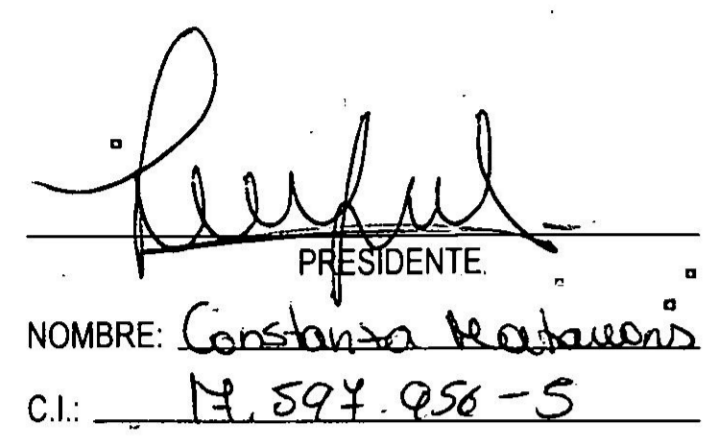 PRESIDENTE.
NOMBRE: Constanza
C.I.: 17.597.956-5